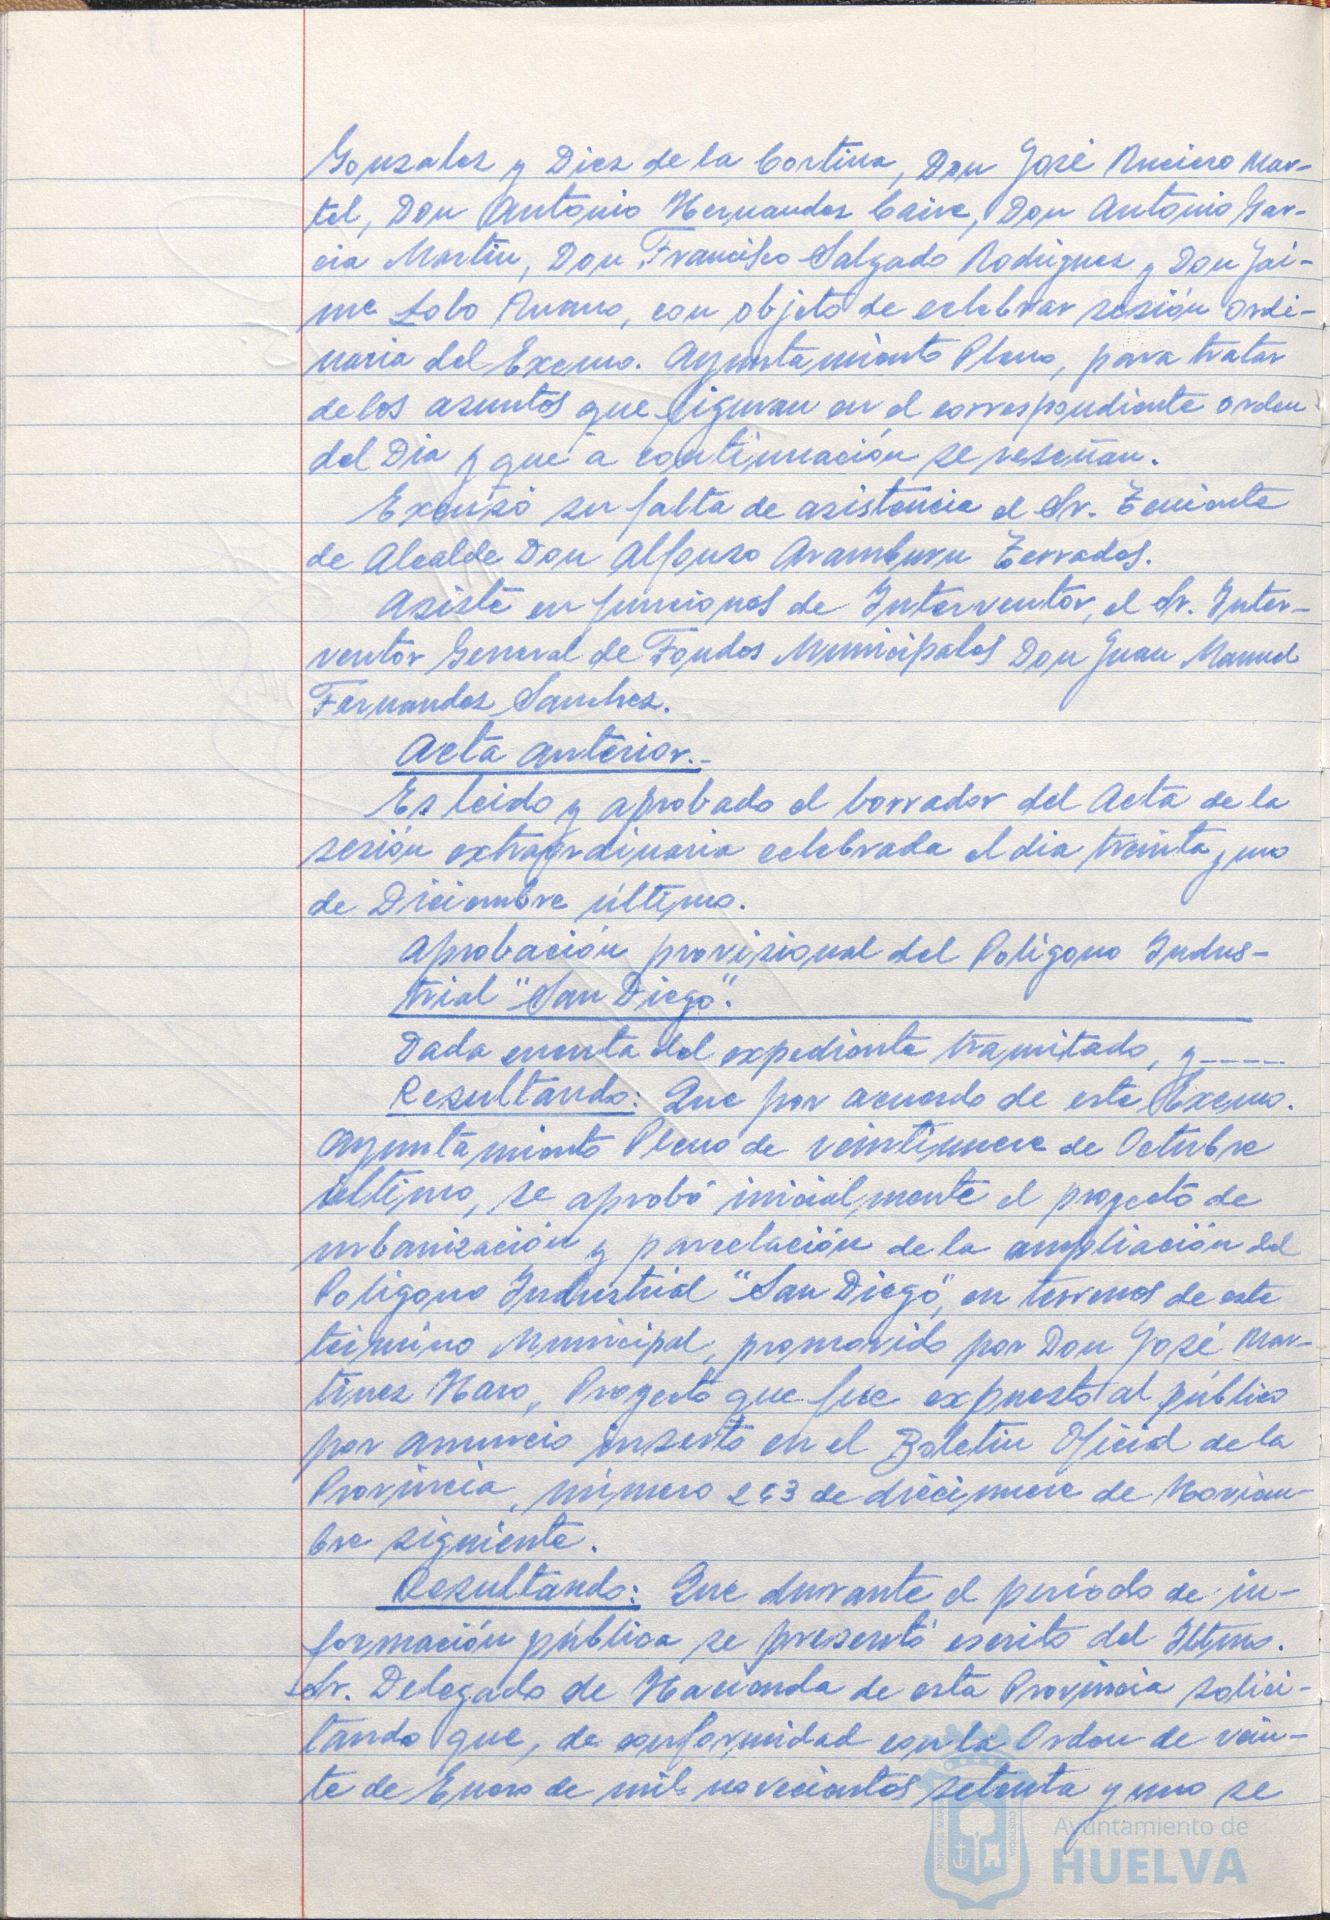 Gonzalez y Diez de la Cortina, Don José Ruciero Mar-
tel, Don Antonio Hernandez Caire, Don Antonio Gar-
cia Martin, Don Francisco Salgado Rodriguez y Don Jai-
me Lobo Ruano, con objeto de celebrar sesión ordi-
naria del Excmo. Ayuntamiento Pleno, para tratar
de los asuntos que figuran en el correspondiente orden
del Dia y que a continuación se reseñan.
Excusó su falta de asistencia el Sr. Teniente
de Alcalde Don Alfonso Aramburu Terrades.
Asiste en funciones de Interventor, el Sr. Inter-
ventor General de Fondos Municipales Don Juan Manuel
Fernandez Sanchez.
Acta anterior.-
Es leido y aprobado el borrador del Acta de la
sesión extraordinaria celebrada el dia treinta y uno
de Diciembre último.
Aprobación provisional del Poligono Indus-
trial "San Diego".
Dada cuenta del expediente tramitado, y-----
Resultando: Que por acuerdo de este Excmo.
Ayuntamiento Pleno de veintinueve de Octubre
último, se aprobó inicialmente el proyecto de
urbanización y parcelación de la ampliación del
Poligono Industrial "San Diego", en terrenos de este
término Municipal, promovido por Don José Mar-
tinez Haro, Proyecto que fue expuesto al público
por anuncio inserto en el Boletin Oficial de la
Provincia, número de diecinueve de Noviem-
bre siguiente.
Resultando: Que durante el período de in-
formación pública se presentó escrito del Iltmo.
Sr. Delegado de Hacienda de esta Provincia solici-
tando que, de conformidad con la Orden de vein-
te de Enero de mil novecientos setenta y uno se
Ayuntamiento de
HUELVA